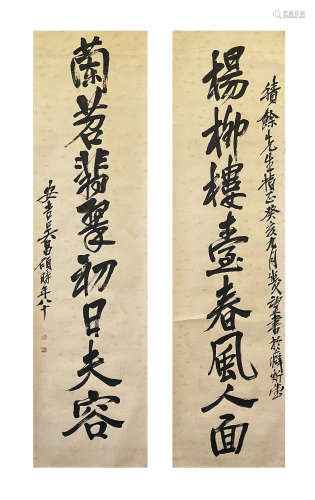 楊柳樓臺春風人面
積餘先生指正癸亥九月幾望書於癖斯堂
蘭苕翡翠初日夫容
安吉吳昌碩時年八十